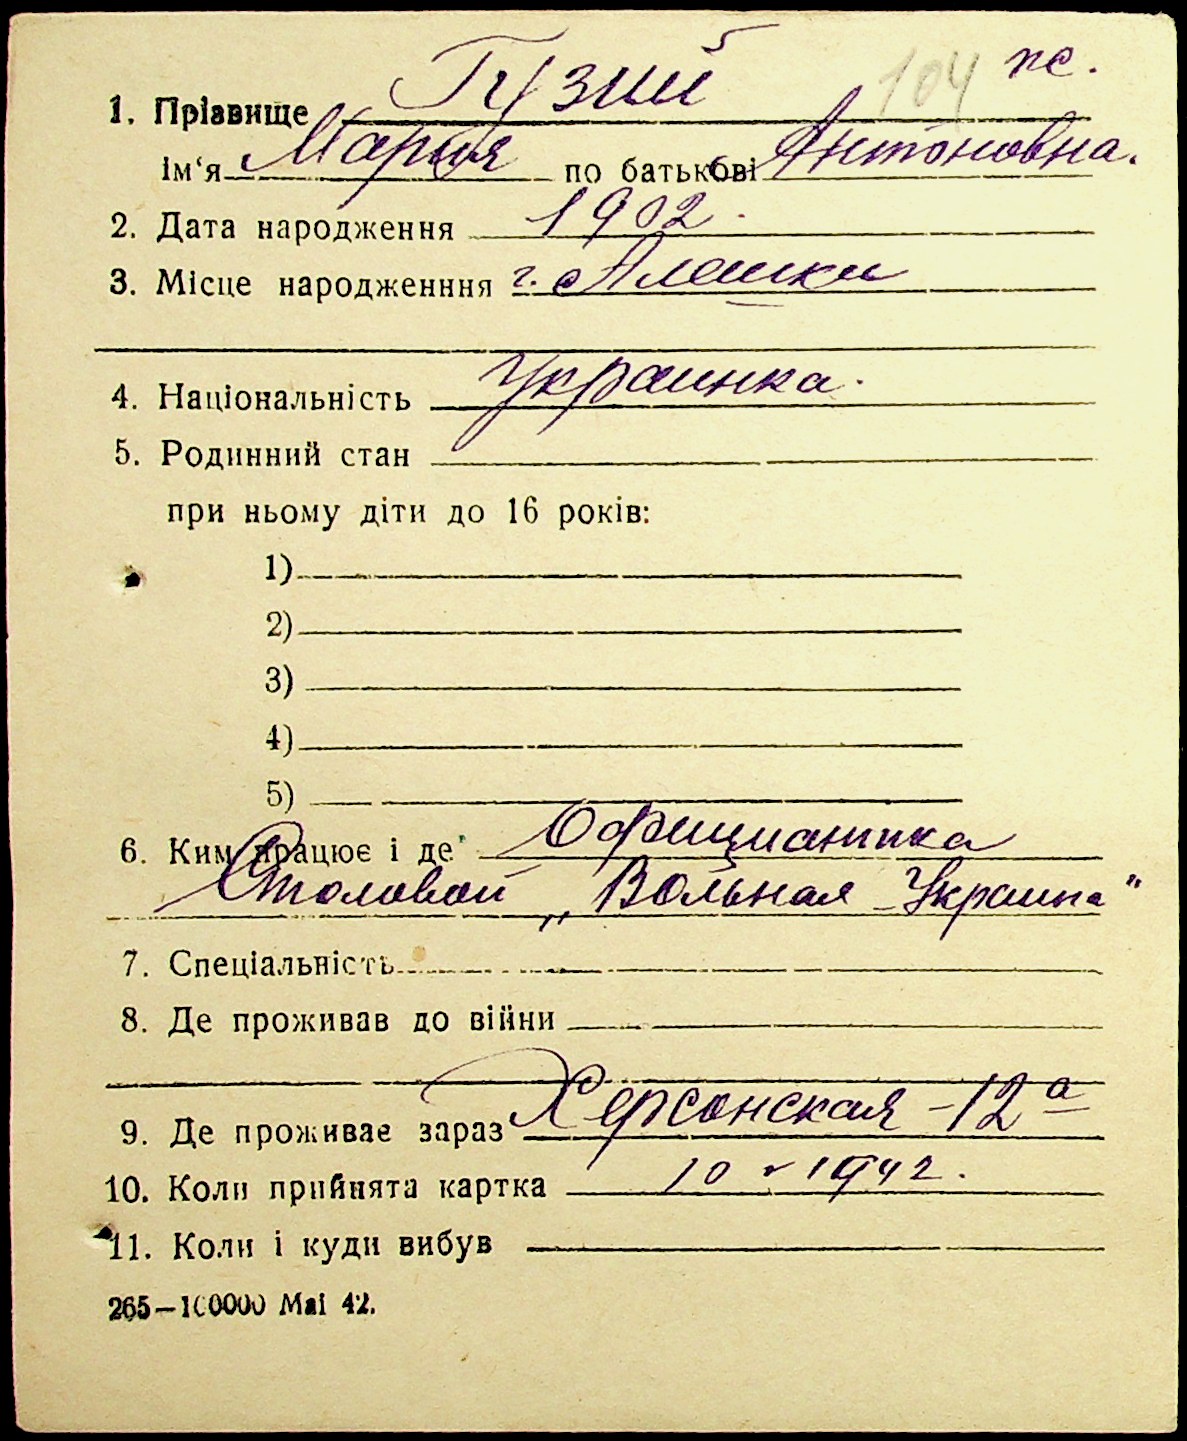 104 пс.
1. Прізвище Гузий
ім‘я Мария по батькові Антоновна.
2. Дата народження 1902.
3. Місце народженння г. Алешки
4. Національність Украинка.
5. Родинний стан
при ньому діти до 16 років:
1)
2)
3)
4)
5)
6. Ким працює і де Официантка
Столовой „Вольная Украина"
7. Спеціальність
8. Де проживав до війни
9. Де проживає зараз Херсонская - 12 а
10. Коли прийнята картка 10 1942.
11. Коли і куди вибув
265—100000 Маі 42.